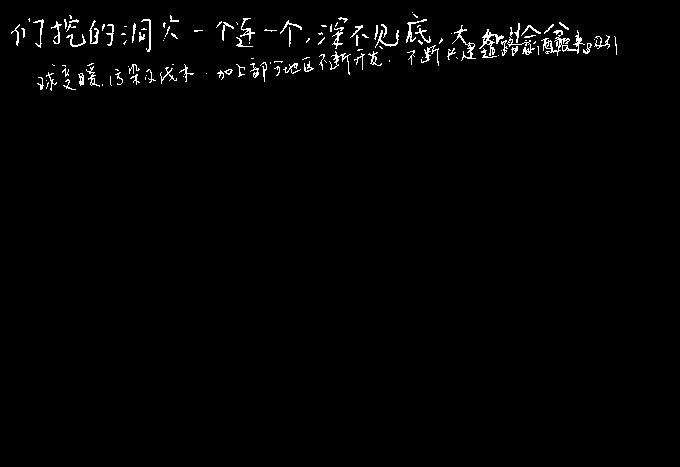 们挖的洞穴一个连一个,深不见底,大
球变暖,污染及伐木.加上部分地区不断开发.不断兴建道路